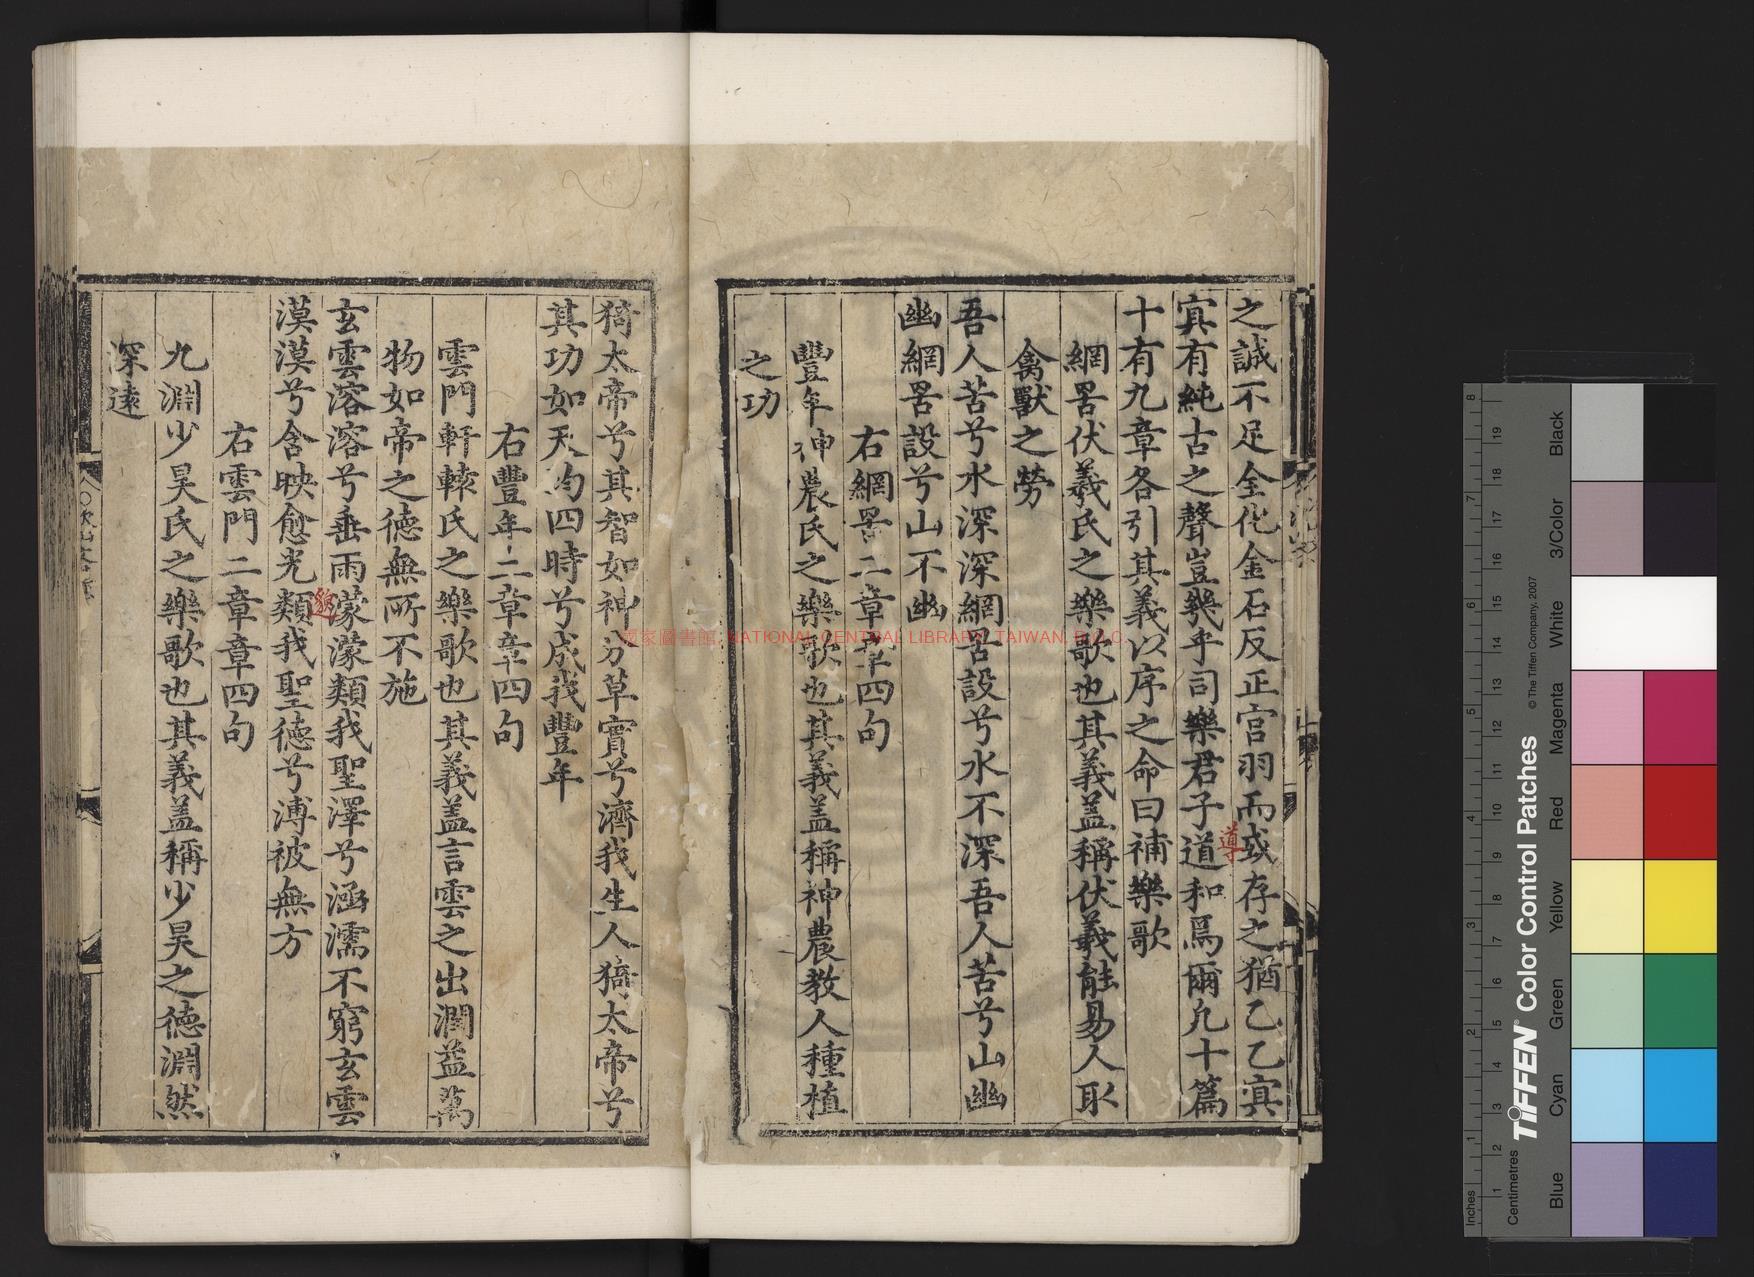 之誠不足全化金石反正宫羽而或存之猶乙乙㝠
㝠有純古之聲豈幾乎司樂君子道和爲爾凢十篇
導
十有九章各引其義以序之命曰補樂歌
網罟伏羲氏之樂歌也其義盖稱伏羲能易人取
禽獸之勞
吾人苦兮水深深網罟設兮水不深吾人苦兮山幽
幽網罟設兮山不幽
右網罟二章章四句
豐年神農氏之樂歌也其義盖稱神農教人種植
之功
猗太帝兮其智如神分草實兮濟我生人猗太帝兮
其功如天均四時兮成我豐年
右豐年二章章四句
雲門軒轅氏之樂歌也其義盖言雲之出潤益萬
物如帝之德無所不施
玄雲溶溶兮垂雨濛濛類我聖澤兮涵濡不窮玄雲
漠漠兮含映愈光類我聖德兮溥被無方
右雲門二章章四句
九淵少昊氏之樂歌也其義盖稱少昊之德淵然
深遠
國家圖書館, NATIONAL CENTRAL LIBRARY, TAIWAN, R.O.C.
Inches
Centimetres
TIFFEN® Color Control Patches
© The Tiffen Company, 2007
Blue
Cyan
Green
Yellow
Red
Magenta
White
3/Color
Black